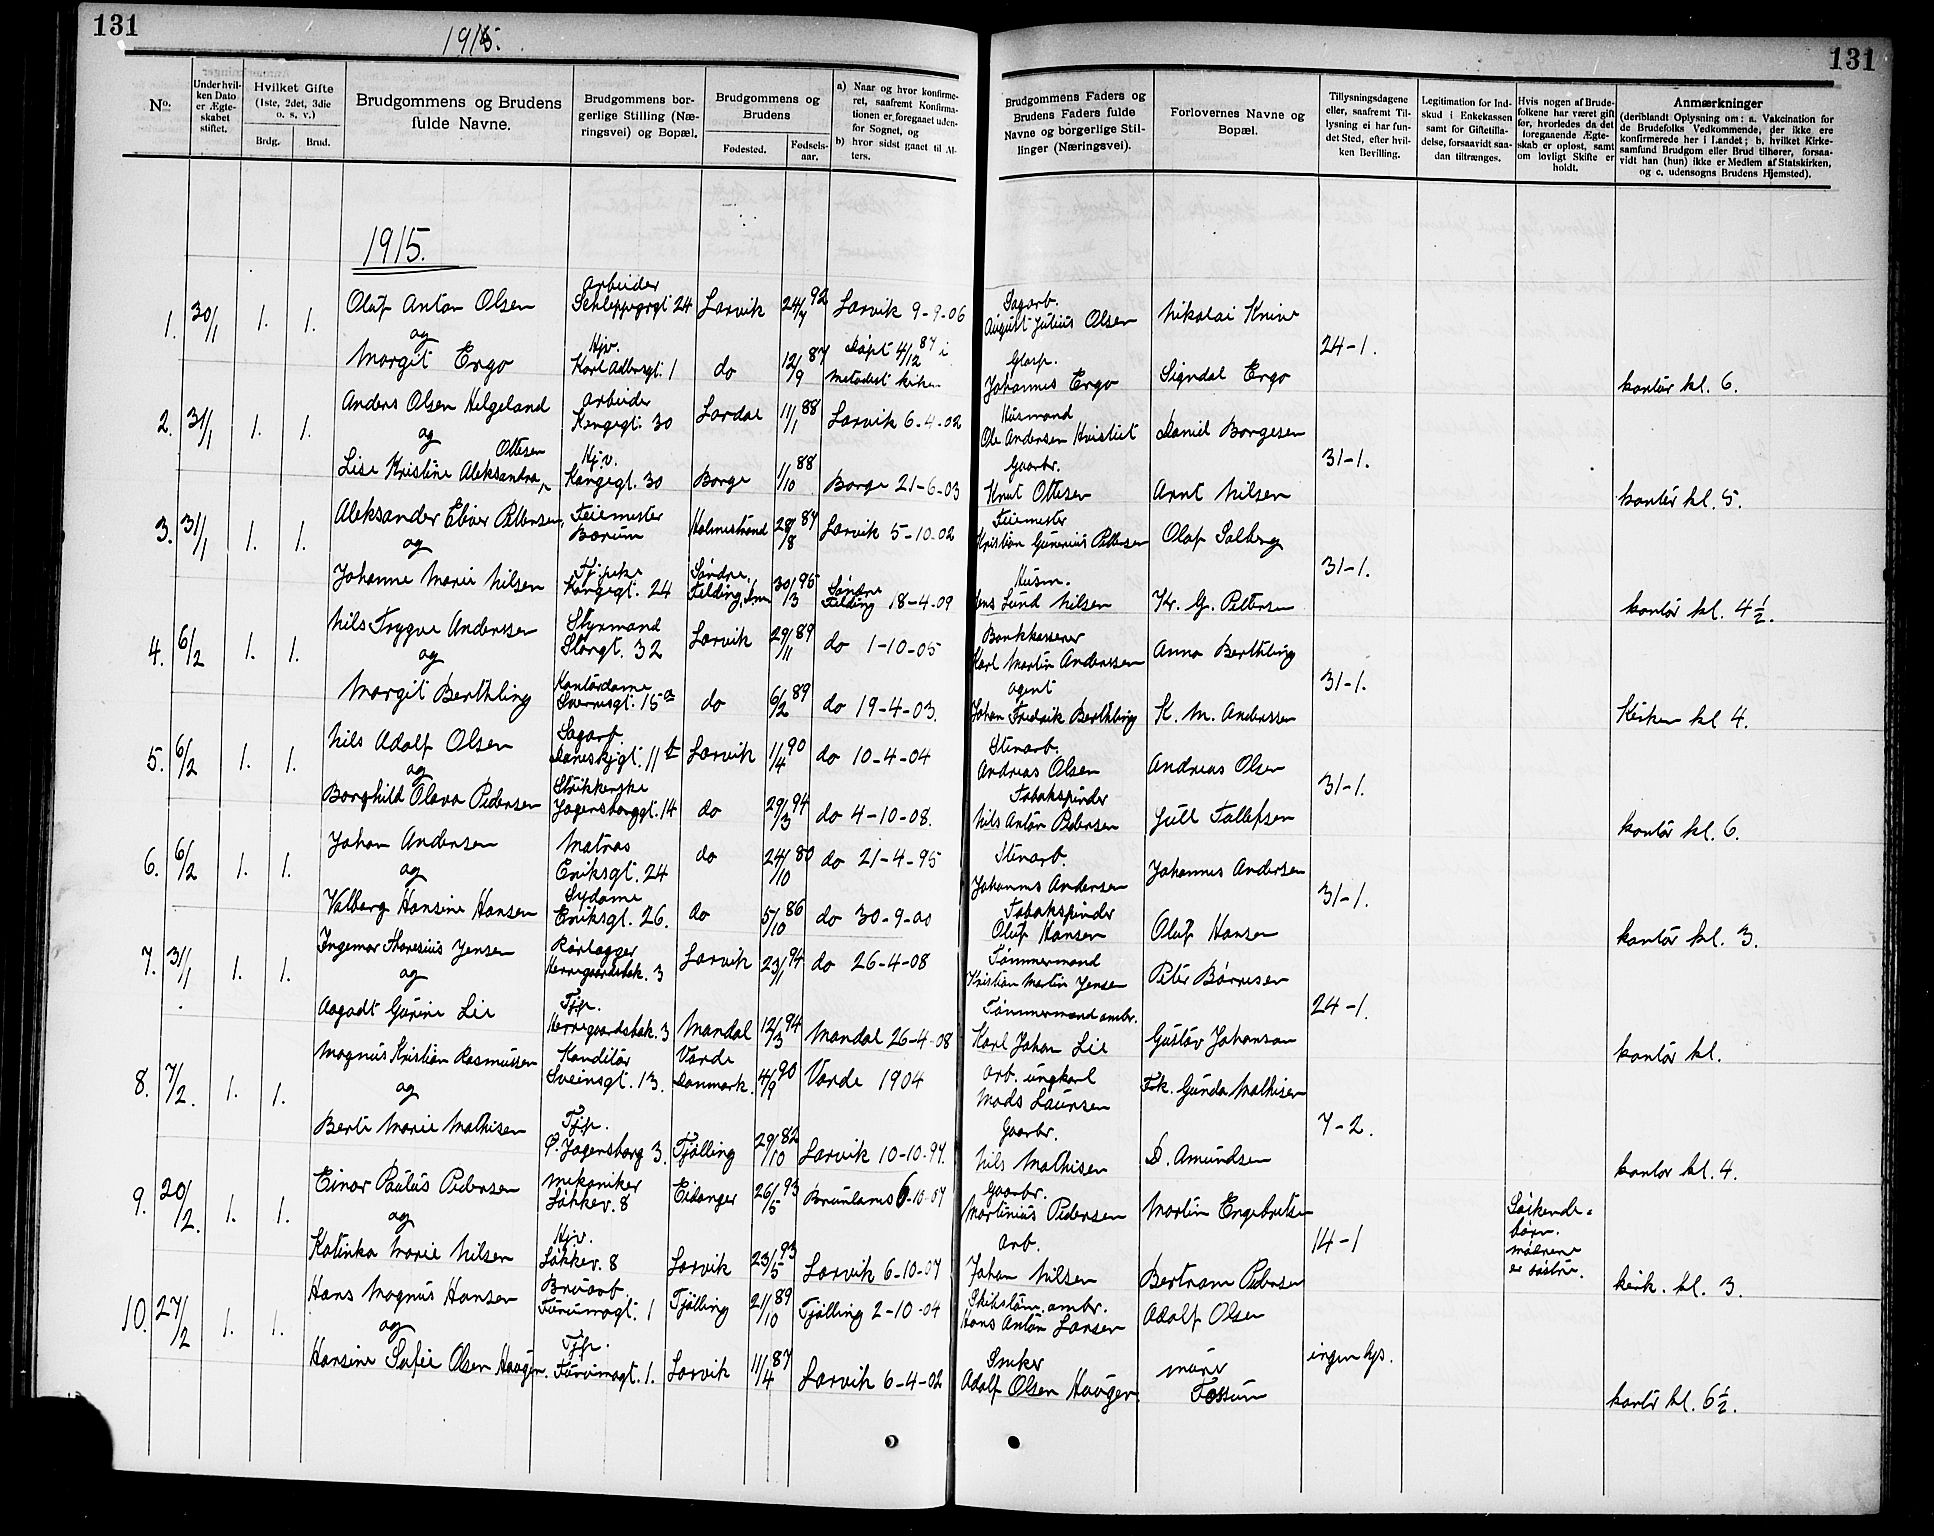 131
1915.
131
No.
Under hvil-
ken Dato
er Ægte-
skabet
stiftet.
Hvilket Gifte
(1ste, 2det, 3die
o. s. v.)
Brdg.
Brud.
Brudgommens og Brudens
fulde Navne.
Brudgommens bor-
gerlige Stilling (Næ-
ringsvei) og Bopæl.
Brudgommens og
Brudens
Fødested.
Fødsels-
aar.
a) Naar og hvor konfirme-
ret, saafremt Konfirma-
tionen er foregaaet uden-
for Sognet, og
b) hvor sidst gaaet til Al-
ters.
Brudgommens Faders og
Brudens Faders fulde
Navne og borgerlige Stil-
linger (Næringsvei).
Forlovernes Navne og
Bopæl.
Tillysningsdagene
eller, saafremt Til-
lysning ei har fun-
det Sted, efter hvil-
ken Bevilling.
Legitimation for Ind-
skud i Enkekassen
samt for Giftetilla-
delse, forsaavidt saa-
dan tiltrænges.
Hvis nogen af Brude-
folkene har været gift
før, hvorledes da det
foregaaende Ægte-
skab er opløst, samt
om lovligt Skifte er
holdt.
Anmærkninger
(deriblandt Oplysning om: a. Vakcination for
de Brudefolks Vedkommende, der ikke ere
konfirmerede her i Landet; b. hvilket Kirke-
samfund Brudgom eller Brud tilhører, forsaa-
vidt han (hun) ikke er Medlem af Statskirken,
og c. udensogns Brudens Hjemsted).
1915.
1. 30/1 1. 1. Oluf Anton Olsen arbeider Schleppegrgt 24 Larvik 24/7 92 Larvik 9-9-06 Sagarb. August Julius Olsen Nikolai Knive 24-1.
og
Margit Ergo Hjv. Karl Adbergt. 1 do 12/9 87 Døpt 4/12 87 i Metodist kirken Glasp. Johannes Ergo Signdal Ergo kontor kl. 6.
2. 31/1 1. 1. Anders Olsen Helgeland arbeider Kongegt. 30 Lardal 11/1 88 Larvik 6-4-02 Husmand Ole Andersen Kvistiet Daniel Borgesen 31-1.
og
Lise Kristine Aleksandra Ottesen Hjv. Kongegt. 30 Borge 1/10 88 Borge 21-6-03 Gaarbr. Knut Ottesen Arnt Nilsen kontor kl. 5.
3. 31/1 1. 1. Aleksander Eliver Pettersen, Feiemester Borum Holmestrand 28/8 87 Larvik 5-10-02 Feiemester Kristian Gunerius Pettersen Olaf Solberg 31-1.
og
Johanne Marie Nilsen Tj.pike Kongegt. 24 Søndre Felding, 30/3 95 Søndre Felding 18-4-09 Husm. Jens Lund Nilsen Kr. G. Pettersen kontor kl. 4½.
4. 6/2 1. 1. Nils Trygve Anderssen Styrmand Storgt. 32 Larvik 29/11 89 do 1-10-05 Bankkasserer Karl Martin Anderssen Anna Berthling 31-1.
og
Margit Berthling Kontordame Sverresgt. 15a do 6/2 89 do 19-4-03. agent Johan Fredrik Berthling K. M. Anderssen Kirken kl 4.
5. 6/2 1. 1. Nils Adolf Olsen Sagarb. Daneskjgt. 11b Larvik 1/4 90 do 10-4-04 Stenarb. Andreas Olsen Andreas Olsen 31-1.
og
Borghild Olava Pedersen Strikkerske Jagersborggt. 14 do 29/3 94 do 4-10-08. Tobakspinder Nils Anton Pedersen Jull Tallefsen kontor kl. 6.
6. 6/2 1. 1. Johan Andersen Matros Eriksgt. 24 do 24/10 80 do 21-4-95 Stenarb. Johannes Andersen Johannes Andersen 31-1.
og
Valborg Hansine Hansen Sydame Eriksgt. 26. do 5/10 86 do 30-9-00 Tobakspinder Oluf Hansen Oluf Hansen kontor kl. 3.
7. 31/1 1. 1. Ingemar Thoresius Jensen Rørlægger Herregaardsbak. 3 Larvik 23/1 94 do 26-4-08 Tømmermand Kristian Martin Jensen Peter Børresen 24-1.
og
Aagodt Gurine Lie Tjp. Herregaardsbak. 3 Mandal 12/3 94 Mandal 26-4-08 Tømmermand ombr. Karl Johan Lie Gustav Johanson kontor kl.
8. 7/2. 1. 1. Magnus Kristian Rasmussen Konditor Sveinsgt. 13. Varde Danmark. 4/9 90 Varde 1904 arb. ungkarl Mads Laursen Frk. Gunda Mathisen 7-2.
og
Berte Marie Mathisen Tjp. Ø. Jagersborg 3. Tjølling 29/10 82 Larvik 10-10-97. Gaarbr. Nils Mathisen D. Amundsen kontor kl. 4.
9. 20/2. 1. 1. Einar Paulus Pedersen mekaniker Løkkev. 8 Eidanger 26/5 93 Brunlanes 6-10-07 Gaarbr. Martinius Pedersen Martin Engebretsen 14-1 Søskende-
børn.
mødrene
er søstre.
og
Katinka Marie Nilsen Hjv. Løkkev. 8 Larvik 23/5 93 Larvik 6-10-07 arb. Johan Nilsen Bertram Pedersen kirk. kl. 3.
10. 27/2 1. 1. Hans Magnus Hansen Bruarb. Furumogt. 1 Tjølling 21/10 89 Tjølling 2-10-04 Skibstøm. ombr. Hans Anton Larsen Adolf Olsen ingen lys.
og
Hansine Sofie Olsen Haugen. Tjp. Furumogt. 1. Larvik 11/4 87 Larvik 6-4-02 Snker Adolf Olsen Haugen. murer Fossum kontor kl. 6½.